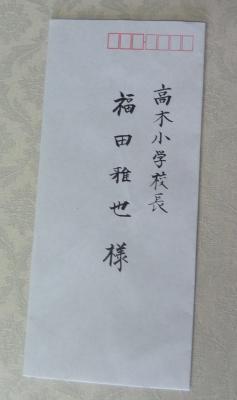 高木小学校長
福田雅也 様